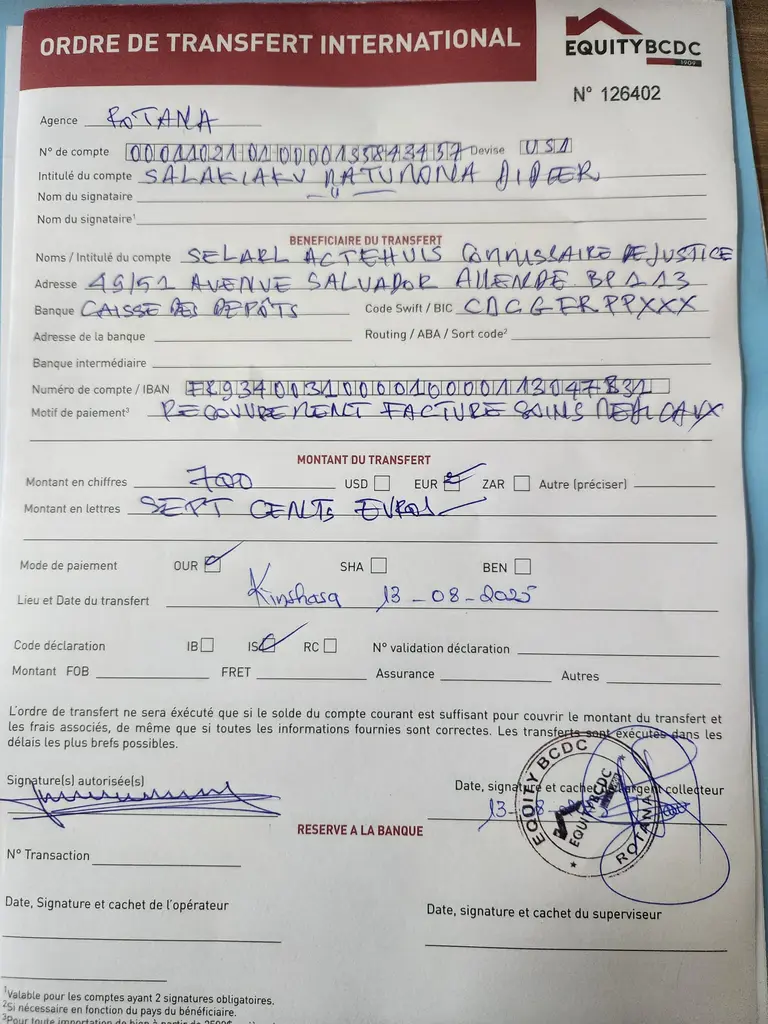 ORDRE DE TRANSFERT INTERNATIONAL
EQUITYBCDC
1909
N° 126402
Agence ROTANA
N° de compte Devise
Intitulé du compte SALAKIAKU DIDIER
Nom du signataire
Nom du signataire¹
BENEFICIAIRE DU TRANSFERT
Noms / Intitulé du compte SELARL ACTEHUIS COMMISSAIRE DE JUSTICE
Adresse 49/51 AVENUE SALVADOR ALLENDE BP 113
Banque CAISSE DES DEPÔTS Code Swift / BIC CDCGFRPPXXX
Adresse de la banque Routing / ABA / Sort code²
Banque intermédiaire
Numéro de compte / IBAN
Motif de paiement³ RECOUVREMENT FACTURE SOINS MEDICAUX
MONTANT DU TRANSFERT
Montant en chiffres 700 USD EUR ZAR Autre (préciser)
Montant en lettres SEPT CENTS EUROS
Mode de paiement OUR SHA BEN
Lieu et Date du transfert Kinshasa 13-08-2025
Code déclaration IB IS RC N° validation déclaration
Montant FOB FRET Assurance Autres
L'ordre de transfert ne sera éxécuté que si le solde du compte courant est suffisant pour couvrir le montant du transfert et
les frais associés, de même que si toutes les informations fournies sont correctes. Les transferts sont exécutés dans les
délais les plus brefs possibles.
Signature(s) autorisée(s)
Date, signature et cachet de l'argent collecteur
EQUITY BCDC
EQUITY BCDC
ROTANA
RESERVE A LA BANQUE
N° Transaction
Date, Signature et cachet de l'opérateur
Date, signature et cachet du superviseur
¹Valable pour les comptes ayant 2 signatures obligatoires.
²Si nécessaire en fonction du pays du bénéficiaire.